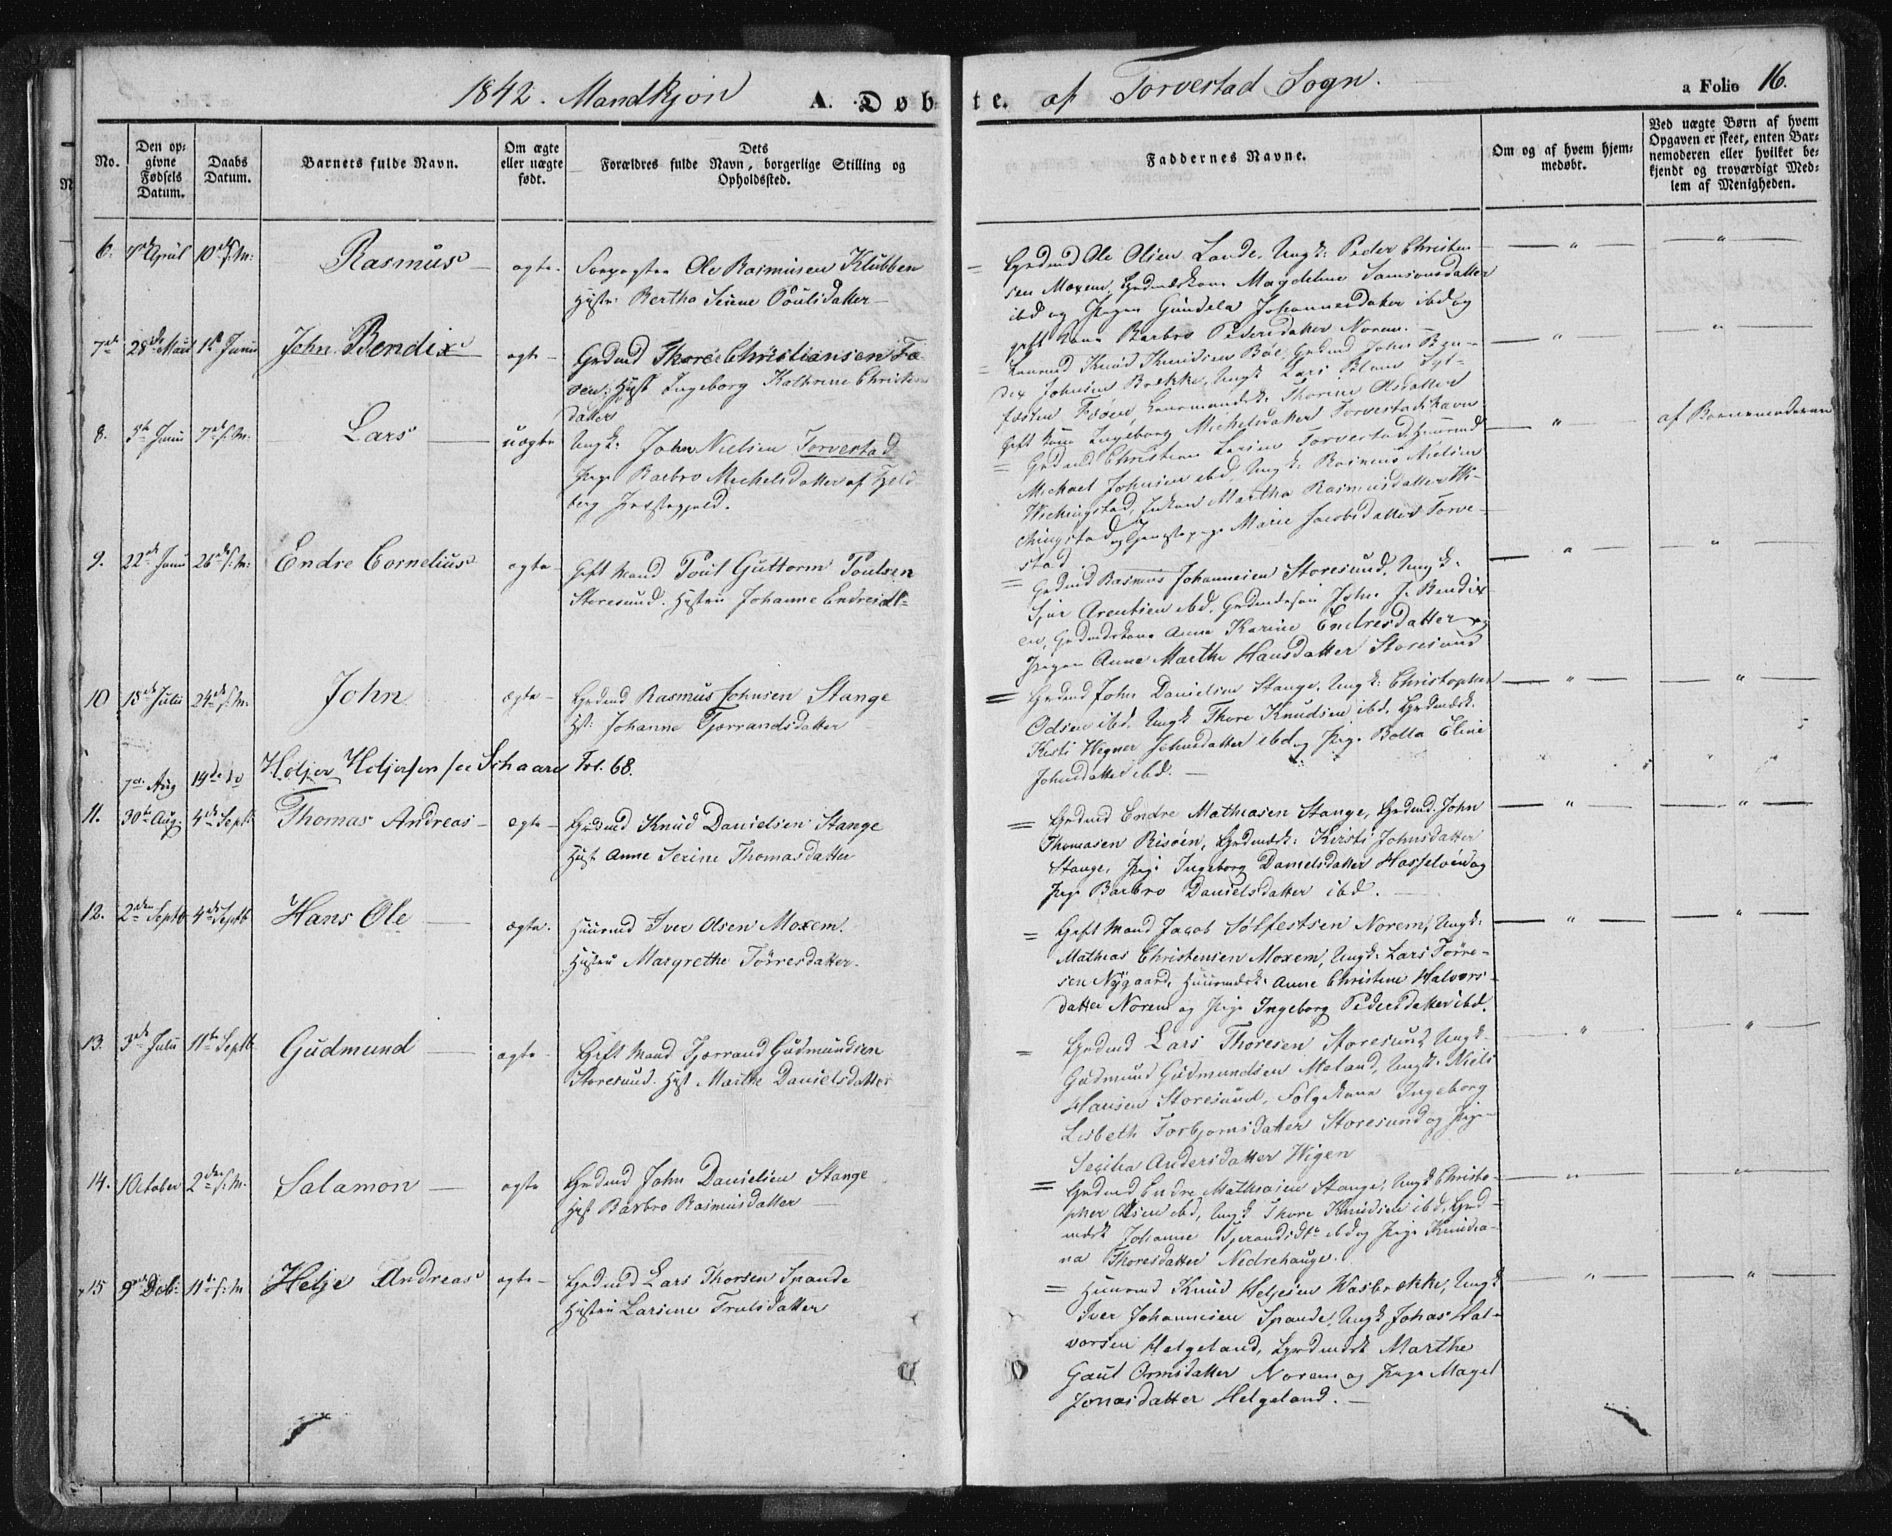 1842. Mandkjøn A. Døbte. af Torvestad Sogn. a Folio 16.
No.
Den opgivne Fødsels Datum.
Daabs Datum.
Barnets fulde Navn.
Om ægte eller uægte født.
Dets Forældres fulde Navn, borgerlige Stilling og Opholdssted.
Faddernes Navne.
Om og af hvem hjemmedøbt.
Ved uægte Børn af hvem Opgaven er skeet, enten Barnemoderen eller hvilket bekjendt og troværdigt Medlem af Menigheden.
6. April 10de f. M: Rasmus ægte. Forpagter Ole Rasmusen Klubben
Hustr: Bertha Serine Poulsdatter
Grdmd Ole Olsen Lande, Ungk: Peder Christen
sen Moxem, Grdmdskone Magdeline Samsonsdatter
ibd og Pigen Gundela Johannesdatter ibd og
gift Kone Barbro Pedersdatter Norem.
7de 28de Mai 1ste Junii John Bendix ægte Grdmd Thore Christiansen Fæ-
øen: Hust Ingeborg Kathrine Christens
datter
Knud Knudsen Bøe, Grdmd John Ben-
dix Johnsen Brekke, Ungk Lars
Fæøen, Thorine Olsdatter
Gift Kone Ingeborg Michelsdatter Torvestadshavn
8. 5te Junii 7de f. M: Lars uægte Ungk: John Nielsen Torvestad
Pige Barbro Michelsdatter af
berg Præstegjeld.
Grdmd Christian Larsen Torvestad, Huusmd
Michael Johnsen ibd, Ungk: Rasmus Nielsen
Wichingstad, Enken Martha Rasmusdatter Wi-
chingstad og Tjenestepige Marie Jacobsdatter Torve-
stad
af Barnemoderen
9. 22de Junii 26de f. M: Endre Cornelius ægte Gift Mand Poul Guttorm Poulsen
Storesund. Hustru Johanne Endresdt-
Grdmd Rasmus Johannesen Storesund, Ungk:
Sjur Arentsen ibd, Grdmdssøn John J. Bendix
en, Grdmdskone Anne Karine Endresdatter og
Pigen Anne Marthe Hansdatter Storesund
10 18de Julii 24de f. M: John ægte Grdmd Rasmus Johnsen Stange
Hst: Johanne Tjerrandsdatter
Grdmd John Danielsen Stange, Ungk: Christopher
Odsen ibd, Ungk Thore Knudsen ibd, Grdmdsk.
Kisti Wegner Johnsdatter ibd og Pige Bolla Eline
Johnsdatter ibd.
7de Aug 14de do Holjer Holjersen see Schaare Fol. 68.
11. 30te Aug: 4de Septb Thomas Andreas ægte Grdmd Knud Danielsen Stange
Hust Anne Serine Thomasdatter
Grdmd Endre Mathiasen Stange, Grdmd. John
Thomasen Risøen, Grdmdsk: Kirsti Johnsdatter
Stange, Pige Ingeborg Danielsdatter Hasseløen og
Pige Barbro Danielsdatter ibd.
12. 2den Septb 4de Septb Hans Ole ægte. Huusmd Iver Olsen Moxem.
Hustru Margrethe Tørresdatter.
Gift Mand Jacob Sølfestsen Norem, Ungk:
Mathias Christensen Moxem, Ungk: Lars Tørre-
sen Nygaard, Huusmdsk: Anne Christine Halvors-
datter Norem og Pige Ingeborg Pedersdatter ibd.
13. 3de Julii 11te Septb Gudmund ægte Gift Mand Tjerrand Gudmundsen
Storesund. Hust Marthe Danielsdatter
Grdmd Lars Thoresen Storesund, Ungk.
Gudmund Gudmundsen Meland, Ungk: Niels
Hansen Storesund, Følgekone Ingeborg
Lisbeth Torbjørnsdatter Storesund og Pige
Secilia Andersdatter Wigen
14. 1 October 2den f. M. Salamon ægte Grdmd John Danielsen Stange
Hust Barbro Rasmusdatter
Grdmd Endre Mathiasen Stange, Ungk Christo-
pher Olsen ibd, Ungk Thore Knudsen ibd, Grd-
mdsk Johanne Tjerandsdtr ibd og Pige Knudia-
na Thoresdatter Nedrehauge.
15 9de Octb: 11te f: M Helje Andreas ægte Grdmd Lars Thorsen Spande
Hustru Larsine Trulsdatter
Huusmd Knud Heljesen Hasbrekke, Ungk
Iver Johannesen Spande, Ungk Johas Hal-
vorsen Helgeland, Grdmdsk Marthe
Gaul Ormsdatter Norem og Pige Magel
Jonasdatter Helgeland.